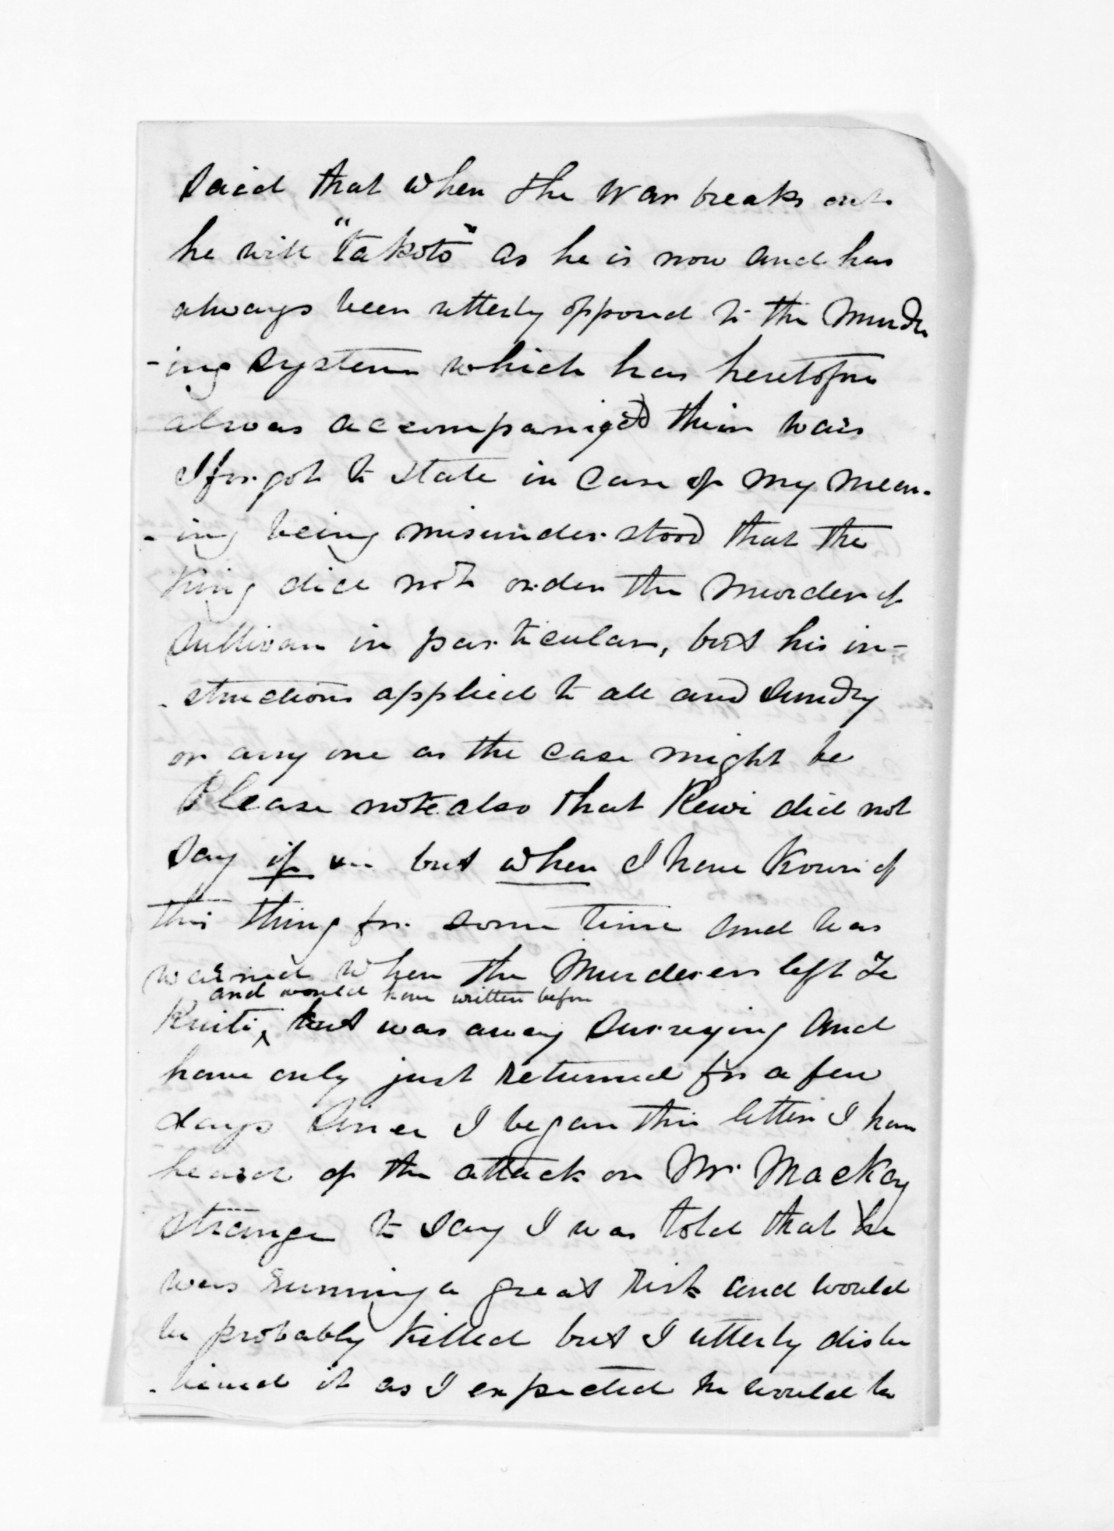 said that when the War breaks out
he will "takoto" as he is now and has
always been utterly opposed to the Murder
-ing system which has heretofore
always accompanied their wars
I forgot to state in case of my mean-
-ing being misunderstood that the
King did not order the murder of
Sullivan in particular, but his in-
-structions applied to all and sundry
or any one as the case might be
Please note also that Rewi did not
say if but when I have known of
this thing for some time and was
warned when the Murderers left Te
and would have written before
Kuiti, but was away surveying and
have only just returned for a few
days Since I began this letter I have
heard of the attack on Mr. Mackay
strange to say I was told that he
was running a great risk and would
be probably killed but I utterly disbe
-lieved it as I expected he would be